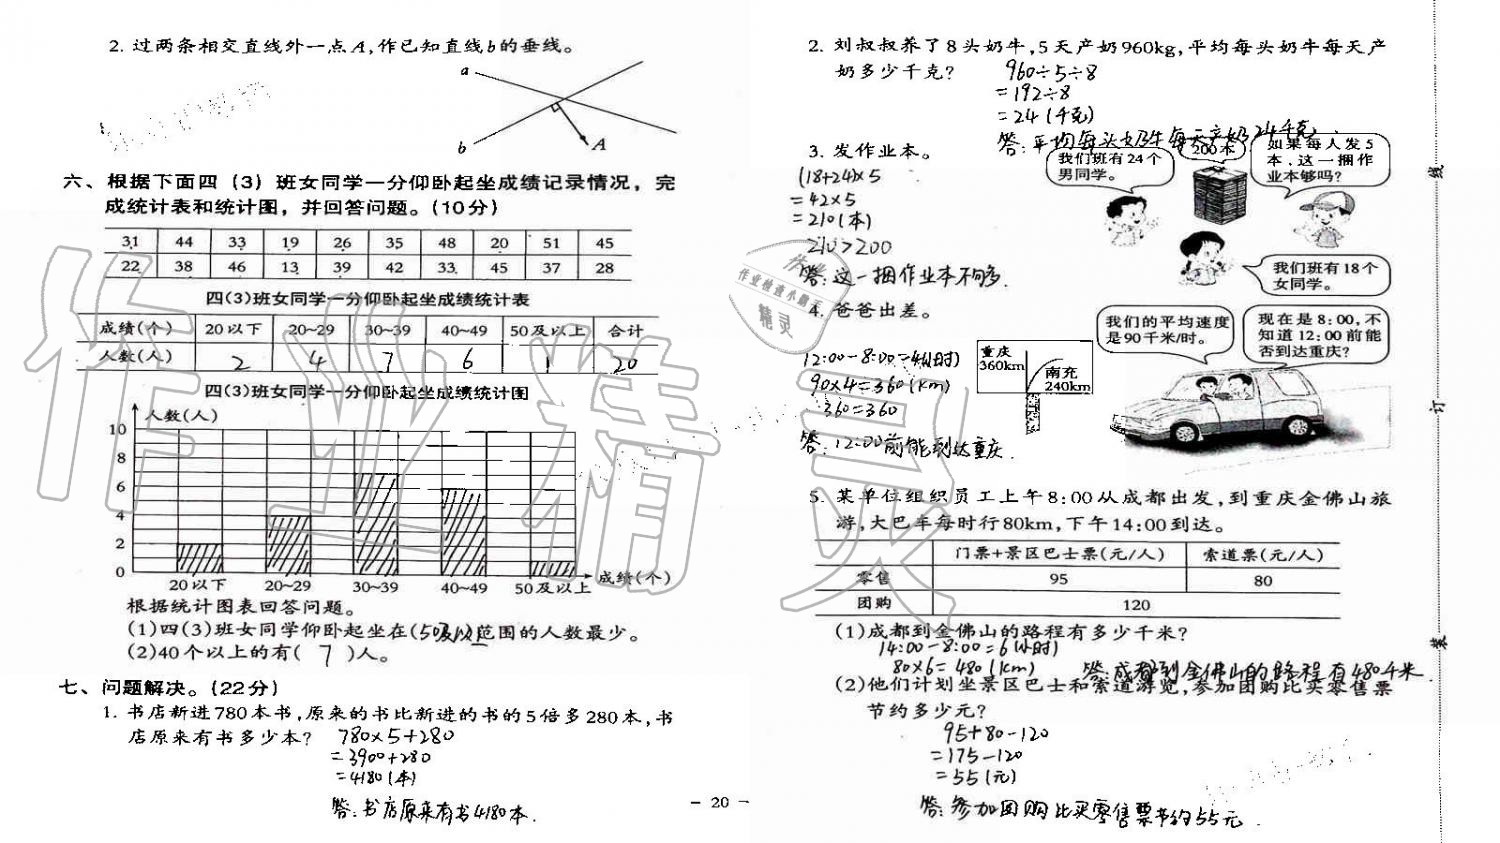 2. 过两条相交直线外一点A,作已知直线b的垂线。
a
b
A
六、根据下面四(3)班女同学一分仰卧起坐成绩记录情况,完
成统计表和统计图,并回答问题。(10分)
31 44 33 19 26 35 48 20 51 45
22 38 46 13 39 42 33 45 37 28
四(3)班女同学一分仰卧起坐成绩统计表
成绩(个) 20以下 20~29 30~39 40~49 50及以上 合计
人数(人) 2 4 7 6 1 20
四(3)班女同学一分仰卧起坐成绩统计图
人数(人)
10
8
6
4
2
0
20以下 20~29 30~39 40~49 50及以上 成绩(个)
根据统计图表回答问题。
(1)四(3)班女同学仰卧起坐在(50及以上)范围的人数最少。
(2)40个以上的有( 7 )人。
七、问题解决。(22分)
1. 书店新进780本书,原来的书比新进的书的5倍多280本,书
店原来有书多少本? 780×5+280
=3900+280
=4180(本)
答:书店原来有书4180本.
- 20 -
2. 刘叔叔养了8头奶牛,5天产奶960kg,平均每头奶牛每天产
奶多少千克? 960÷5÷8
=192÷8
=24(千克)
答:平均每头奶牛每天产奶24千克.
3. 发作业本。
(18+24)×5
=42×5
=210(本)
210>200
答:这一捆作业本不够.
我们班有24个
男同学。
200本
如果每人发5
本,这一捆作
业本够吗?
我们班有18个
女同学。
4. 爸爸出差。
12:00-8:00=4(小时)
90×4=360(km)
360=360
答:12:00前能到达重庆.
重庆
360km
南充
240km
我们的平均速度
是90千米/时。
现在是8:00,不
知道12:00前能
否到达重庆?
5. 某单位组织员工上午8:00从成都出发,到重庆金佛山旅
游,大巴车每时行80km,下午14:00到达。
门票+景区巴士票(元/人) 索道票(元/人)
零售 95 80
团购 120
(1)成都到金佛山的路程有多少千米?
14:00-8:00=6(小时)
80×6=480(km) 答:成都到金佛山的路程有480千米.
(2)他们计划坐景区巴士和索道游览,参加团购比买零售票
节约多少元?
95+80-120
=175-120
=55(元)
答:参加团购比买零售票节约55元.
线
订
装
作业精灵
作业检查小助手
精灵